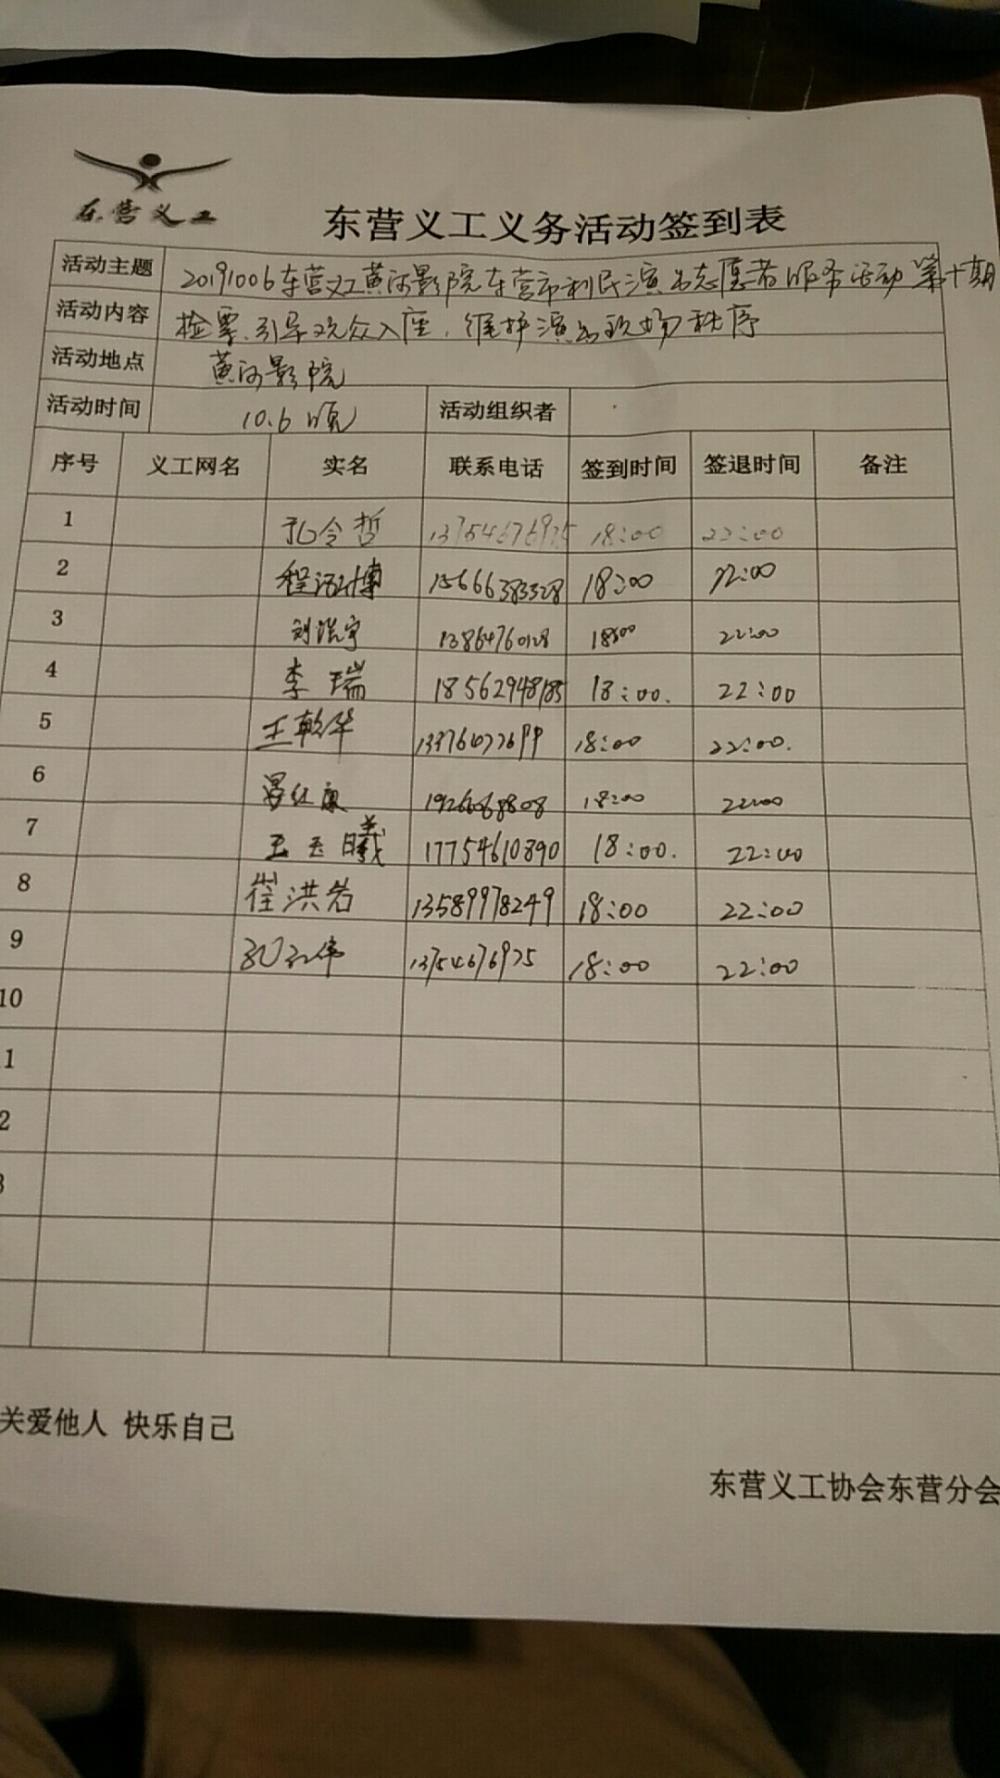 东营义工
东营义工义务活动签到表
活动主题 20191006东营义工黄河影院东营市利民演出志愿者服务活动第十期
活动内容 检票、引导观众入座、维护演出现场秩序
活动地点 黄河影院
活动时间 10.6晚 活动组织者
序号 义工网名 实名 联系电话 签到时间 签退时间 备注
1 孔令哲 13754676975 18:00 22:00
2 程 博 15666383328 18:00 22:00
3 刘洪宇 13864760128 18:00 22:00
4 李瑞 18562948185 18:00. 22:00
5 王乾华 18:00 22:00.
6 18:00 22:00
7 王玉曦 17754610890 18:00. 22:00
8 崔洪岩 13589978249 18:00 22:00
9 13754676975 18:00 22:00
10
1
2
3
关爱他人 快乐自己
东营义工协会东营分会